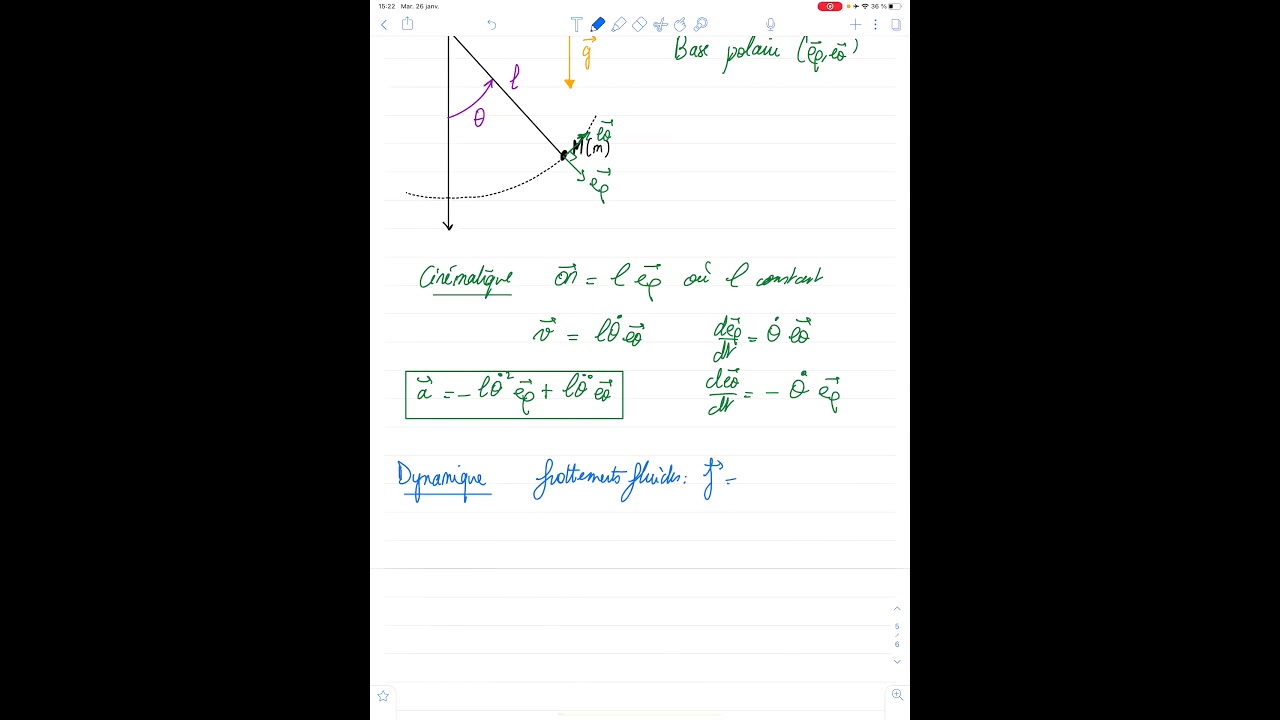 15:22 Mar. 26 janv.
36 %
T
g⃗
Base polaire (e⃗ρ, e⃗θ)
l
θ
e⃗θ
M(m)
e⃗ρ
Cinématique O⃗M = l e⃗ρ où l constant
v⃗ = lθ̇ e⃗θ
de⃗ρ/dt = θ̇ e⃗θ
a⃗ = -lθ̇² e⃗ρ + lθ̈ e⃗θ
de⃗θ/dt = - θ̇ e⃗ρ
Dynamique frottements fluides: f⃗ =
5
/
6